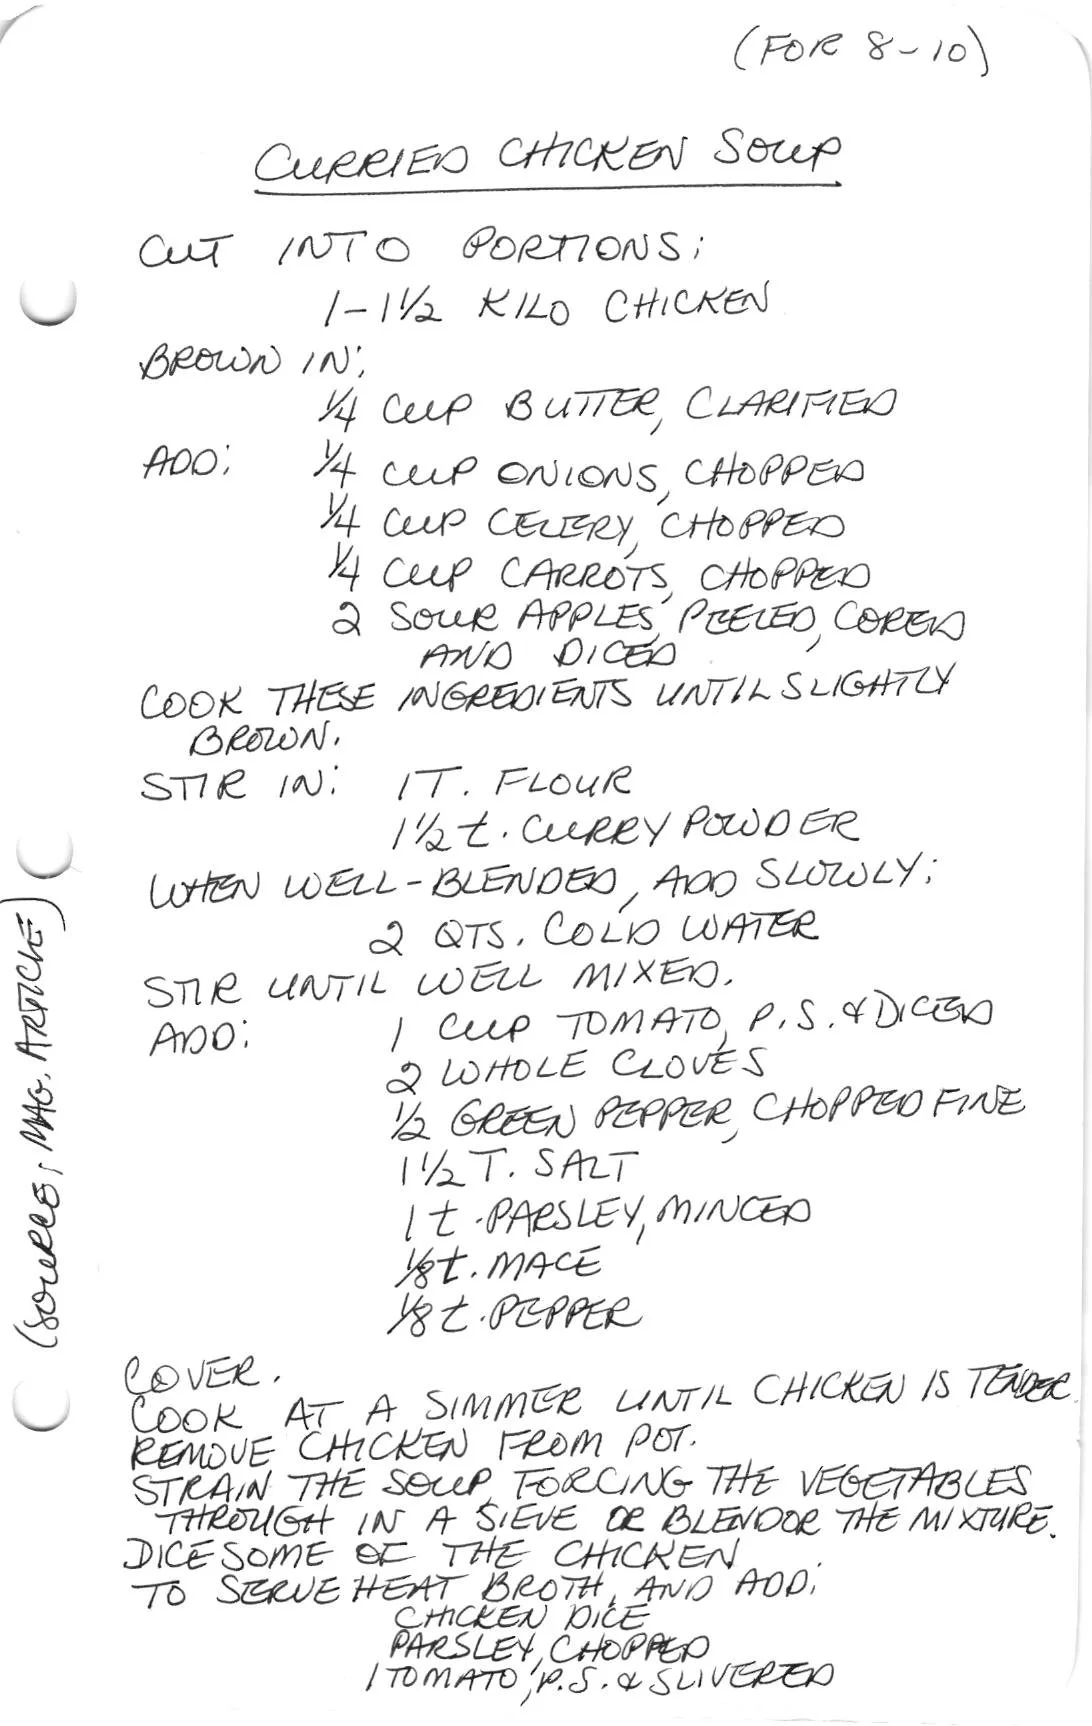 (FOR 8-10)
CURRIED CHICKEN SOUP
CUT INTO PORTIONS:
1-1½ KILO CHICKEN
BROWN IN:
¼ CUP BUTTER, CLARIFIED
ADD: ¼ CUP ONIONS, CHOPPED
¼ CUP CELERY, CHOPPED
¼ CUP CARROTS, CHOPPED
2 SOUR APPLES, PEELED, CORED
AND DICED
COOK THESE INGREDIENTS UNTIL SLIGHTLY
BROWN.
STIR IN: 1 T. FLOUR
1½ t. CURRY POWDER
WHEN WELL-BLENDED, ADD SLOWLY:
2 QTS. COLD WATER
STIR UNTIL WELL MIXED.
ADD: 1 CUP TOMATO, P.S. & DICED
2 WHOLE CLOVES
½ GREEN PEPPER, CHOPPED FINE
1½ T. SALT
1 t. PARSLEY, MINCED
⅛ t. MACE
⅛ t. PEPPER
COVER.
COOK AT A SIMMER UNTIL CHICKEN IS TENDER.
REMOVE CHICKEN FROM POT.
STRAIN THE SOUP, FORCING THE VEGETABLES
THROUGH IN A SIEVE OR BLENDOR THE MIXTURE.
DICE SOME OF THE CHICKEN
TO SERVE HEAT BROTH, AND ADD:
CHICKEN DICE
PARSLEY, CHOPPED
1 TOMATO, P.S. & SLIVERED
(SOURCE; MAG. ARTICLE)